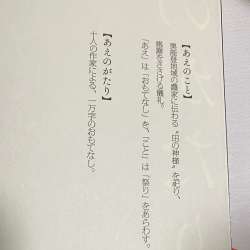 【あえのこと】
奥能登地域の農家に伝わる“田の神様”を祀り、
感謝をささげる儀礼。
「あえ」は「おもてなし」を、「こと」は「祭り」をあらわす。
【あえのがたり】
十人の作家による、一万字のおもてなし。